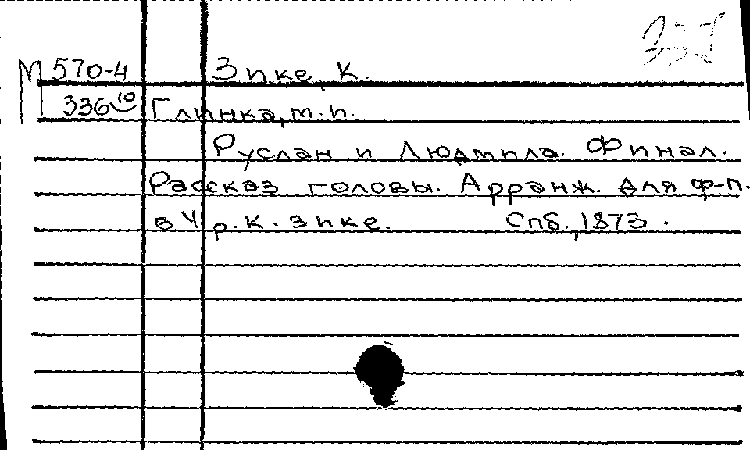 М 570-4 Зике, К.
336 10 Глинка, М. И.
Руслан и Людмила. Финал.
Рассказ головы. Арранж. для ф-п.
в 4 р. К. Зике. Спб., 1873.